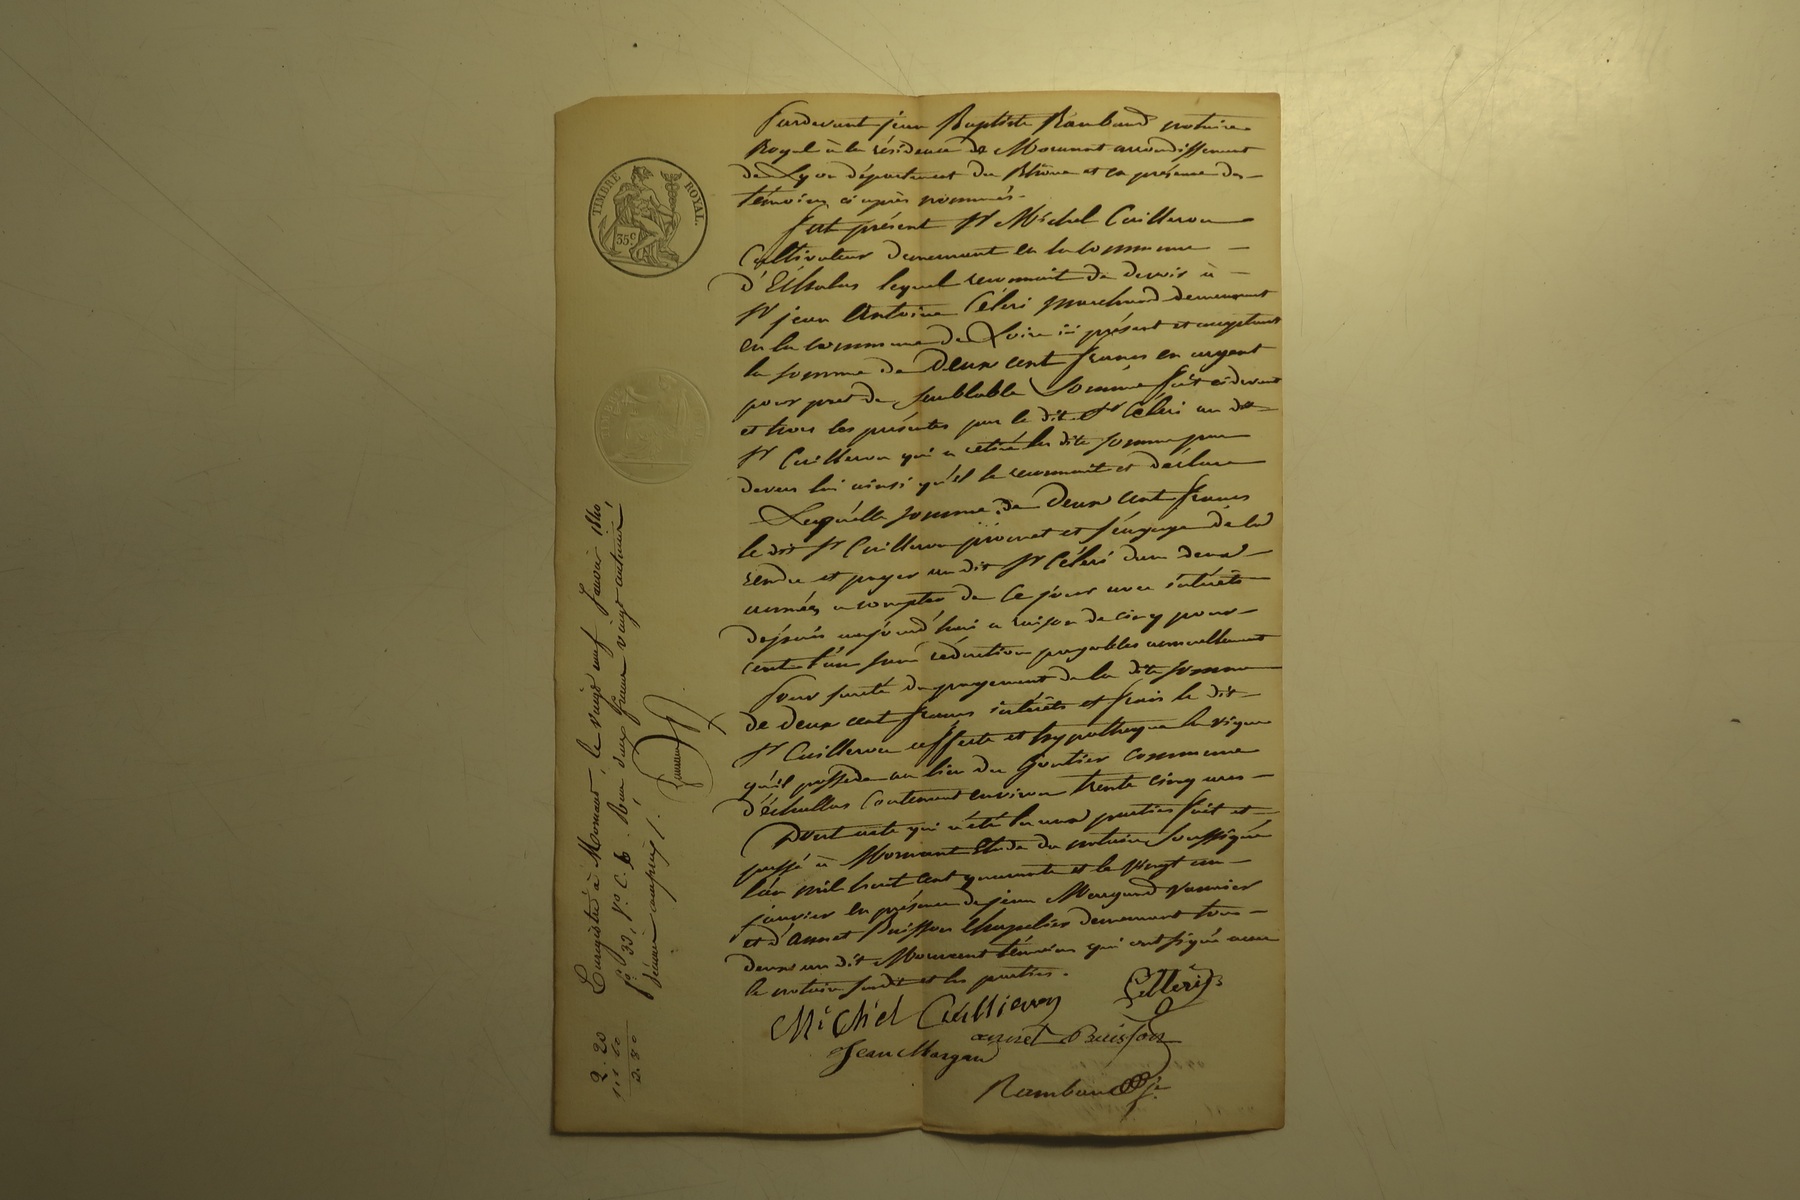 Pardevant jean Baptiste Rambaud notaire
Royal à la résidence de Mornant arrondissement
de Lyon département du Rhône et en présence des
témoins ci après nommés.
fut présent Sr Michel Cuilleron
Cultivateur demeurant en la commune
d'Echalas lequel reconnait de devoir à
Sr jean Antoine Céleri marchand demeurant
en la commune de Loire ici présent et acceptant
la somme de Deux cent francs en argent
pour pret de semblable Somme fait cidevant
et hors les présentes par le dit Sr Céleri au dit
Sr Cuilleron qui a retiré la dite somme par
devers lui ainsi qu'il le reconnait et déclare
Laquelle somme de Deux cent francs
le dit Sr Cuilleron promet et s'engage de la
rendre et payer au dit Sr Céleri dans deux
années a compter de ce jour avec intérêts
depuis aujourd'hui a raison de cinq pour
cent l'an sans réduction payables annuellement
Pour sureté du payement de la dite somme
de deux cent francs intérêts et frais le dit
Sr Cuilleron affecte et hypotheque la vigne
qu'il possede au lieu du Goutier commune
d'échallas Contenant environ trente cinq ares
Dont acte qui a été lu aux parties fait et
passé à Mornant Etude du notaire soussigné
l'an mil huit cent quarante et le vingt un
janvier en présence de jean Margand
et d'annet Buisson Chapelier demeurant tous
deux au dit Mornant témoins qui ont signé avec
le notaire susdit et les parties.
Michel Cuilleron
Celleri
annet Buisson
Jean Margand
Rambaud
TIMBRE ROYAL.
35 c
Enregistré à Mornant, le vingt neuf Janvier 1840
fo 33, Vo C. 6. Reçu deux francs vingt centimes,
dixième compris /.
2. 20